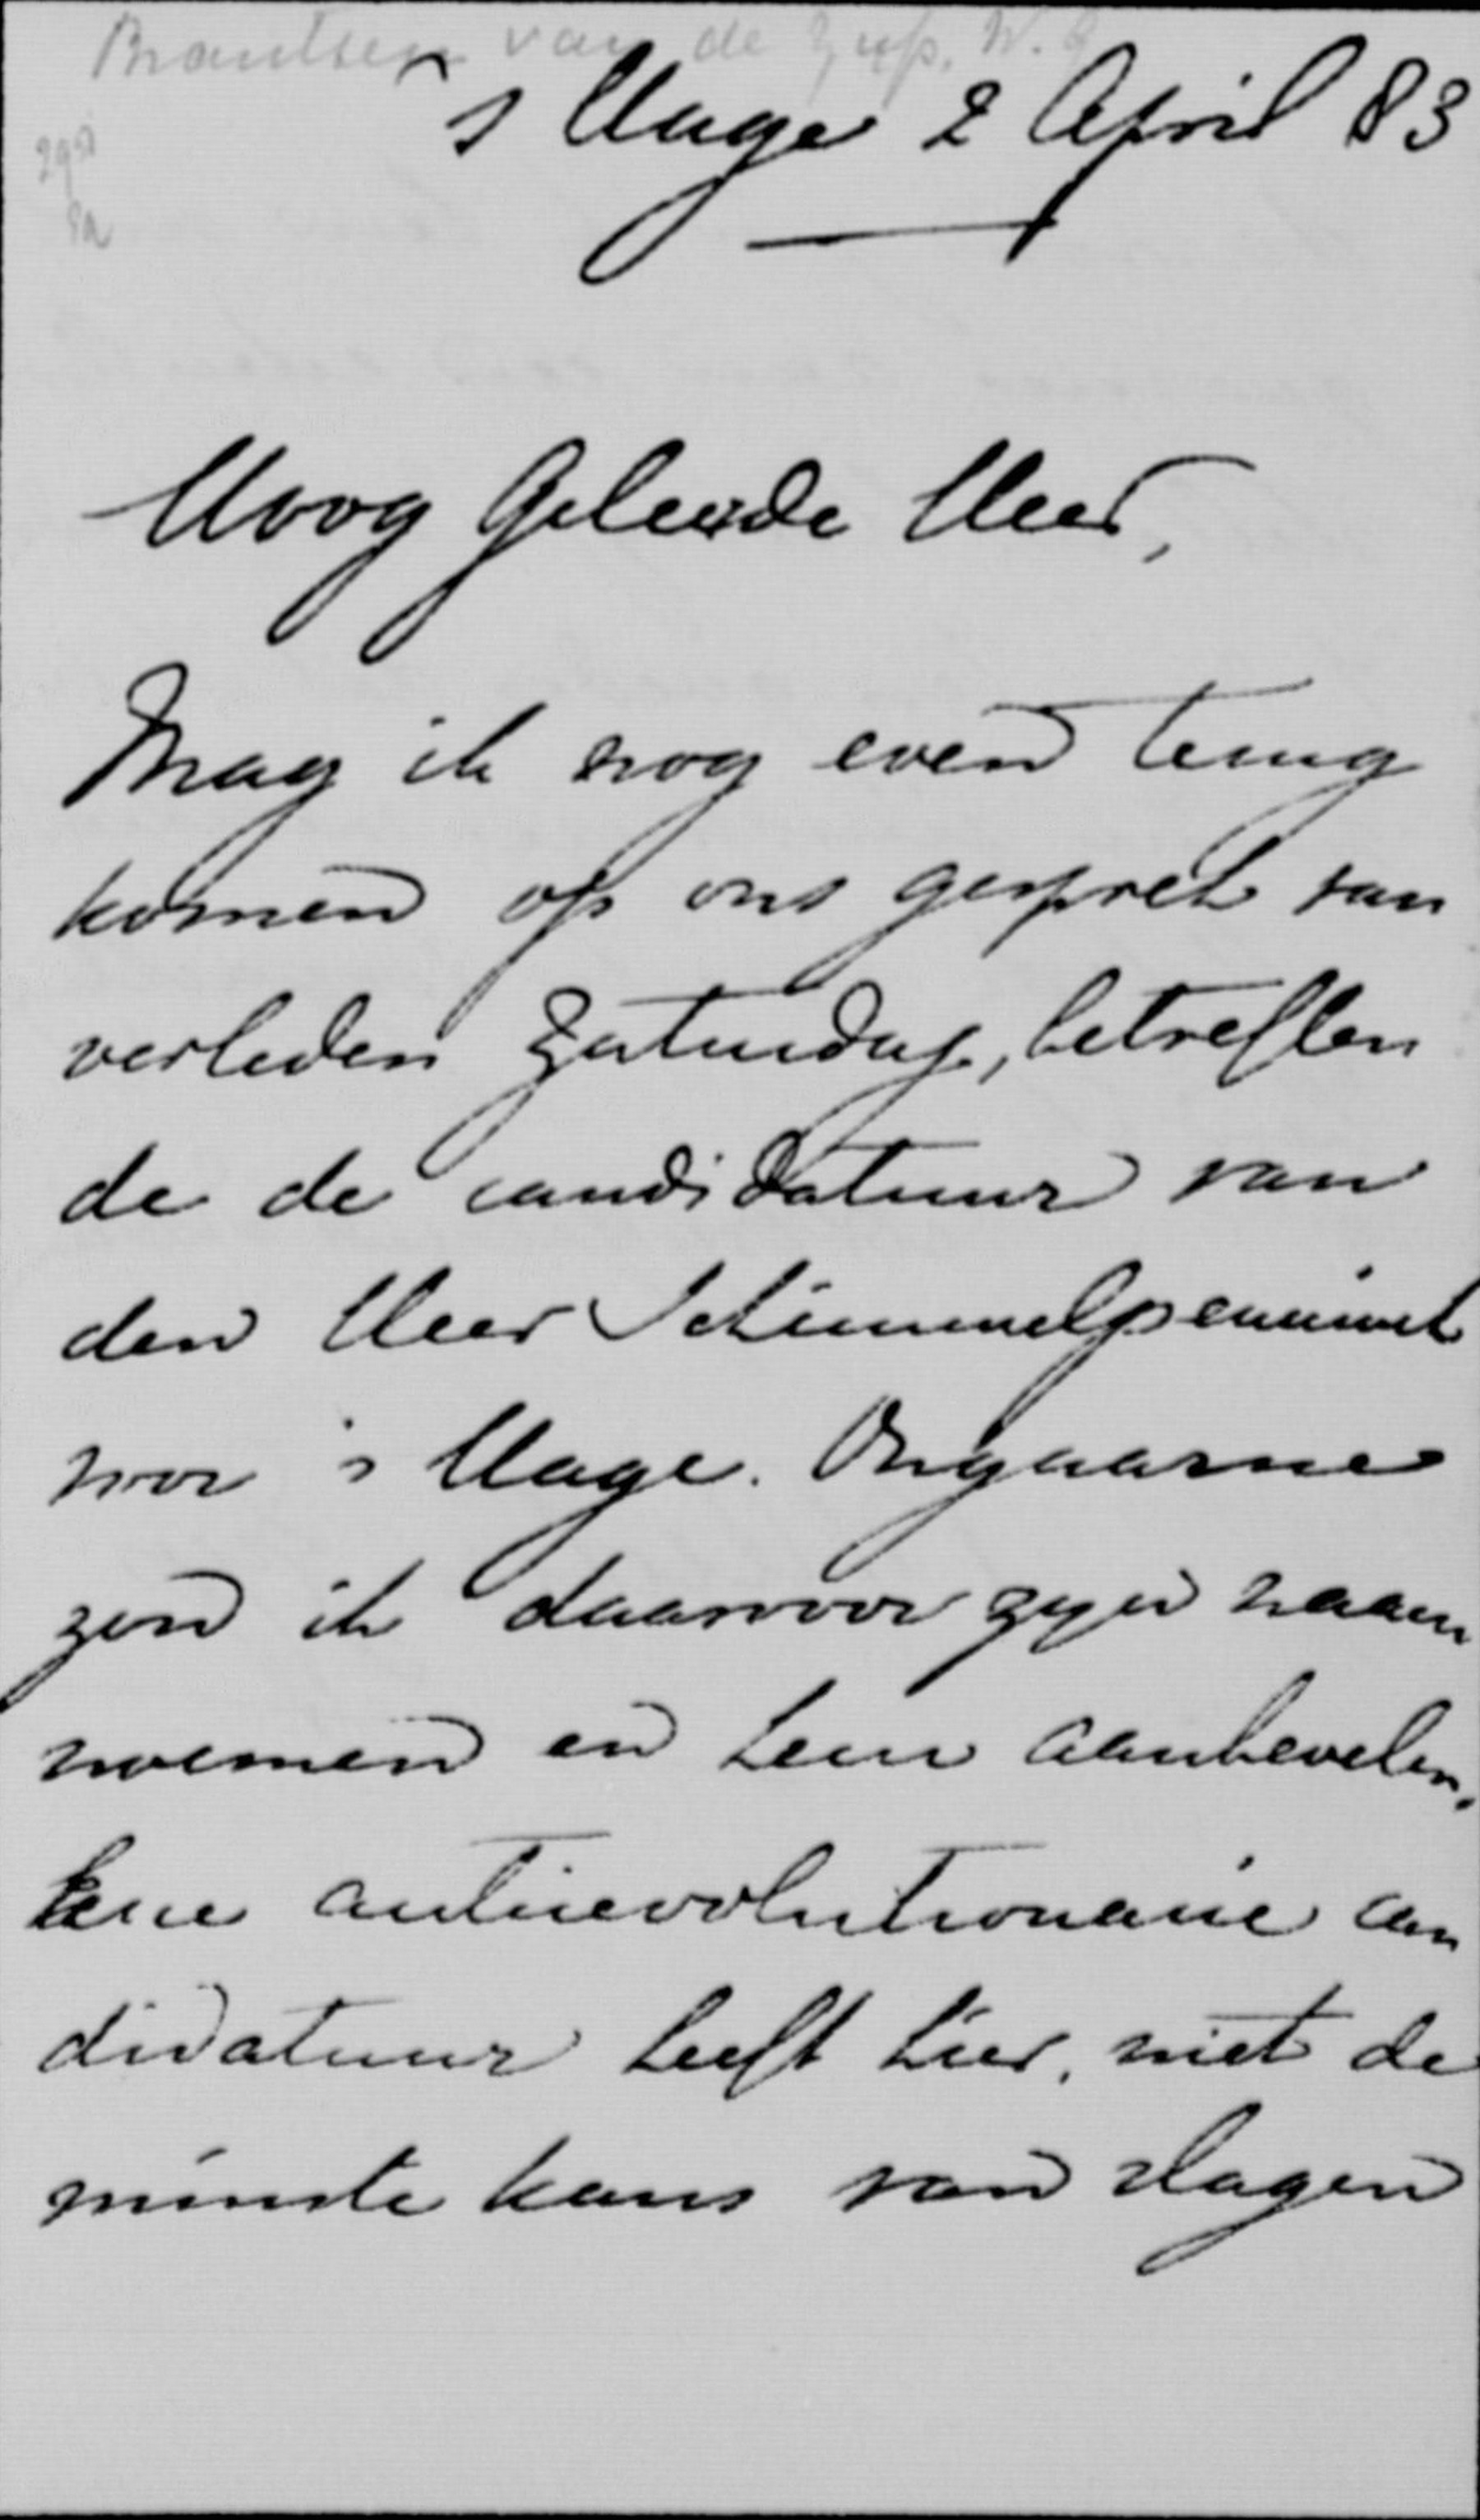 Brantsen van de Zyp, W. G
's Hage 2 April 83
Hoog Geleerde Heer,
Mag ik nog even terug
komen op ons gesprek van
verleden Zaturdag, betreffen
de de candidatuur van
den Heer Schimmelpenninck
voor 's Hage. Ongaarne
zou ik daarvoor zijn naam
noemen en hem aanbevelen.
Eene antirevolutionaire can
didatuur heeft hier, niet de
minste kans van slagen